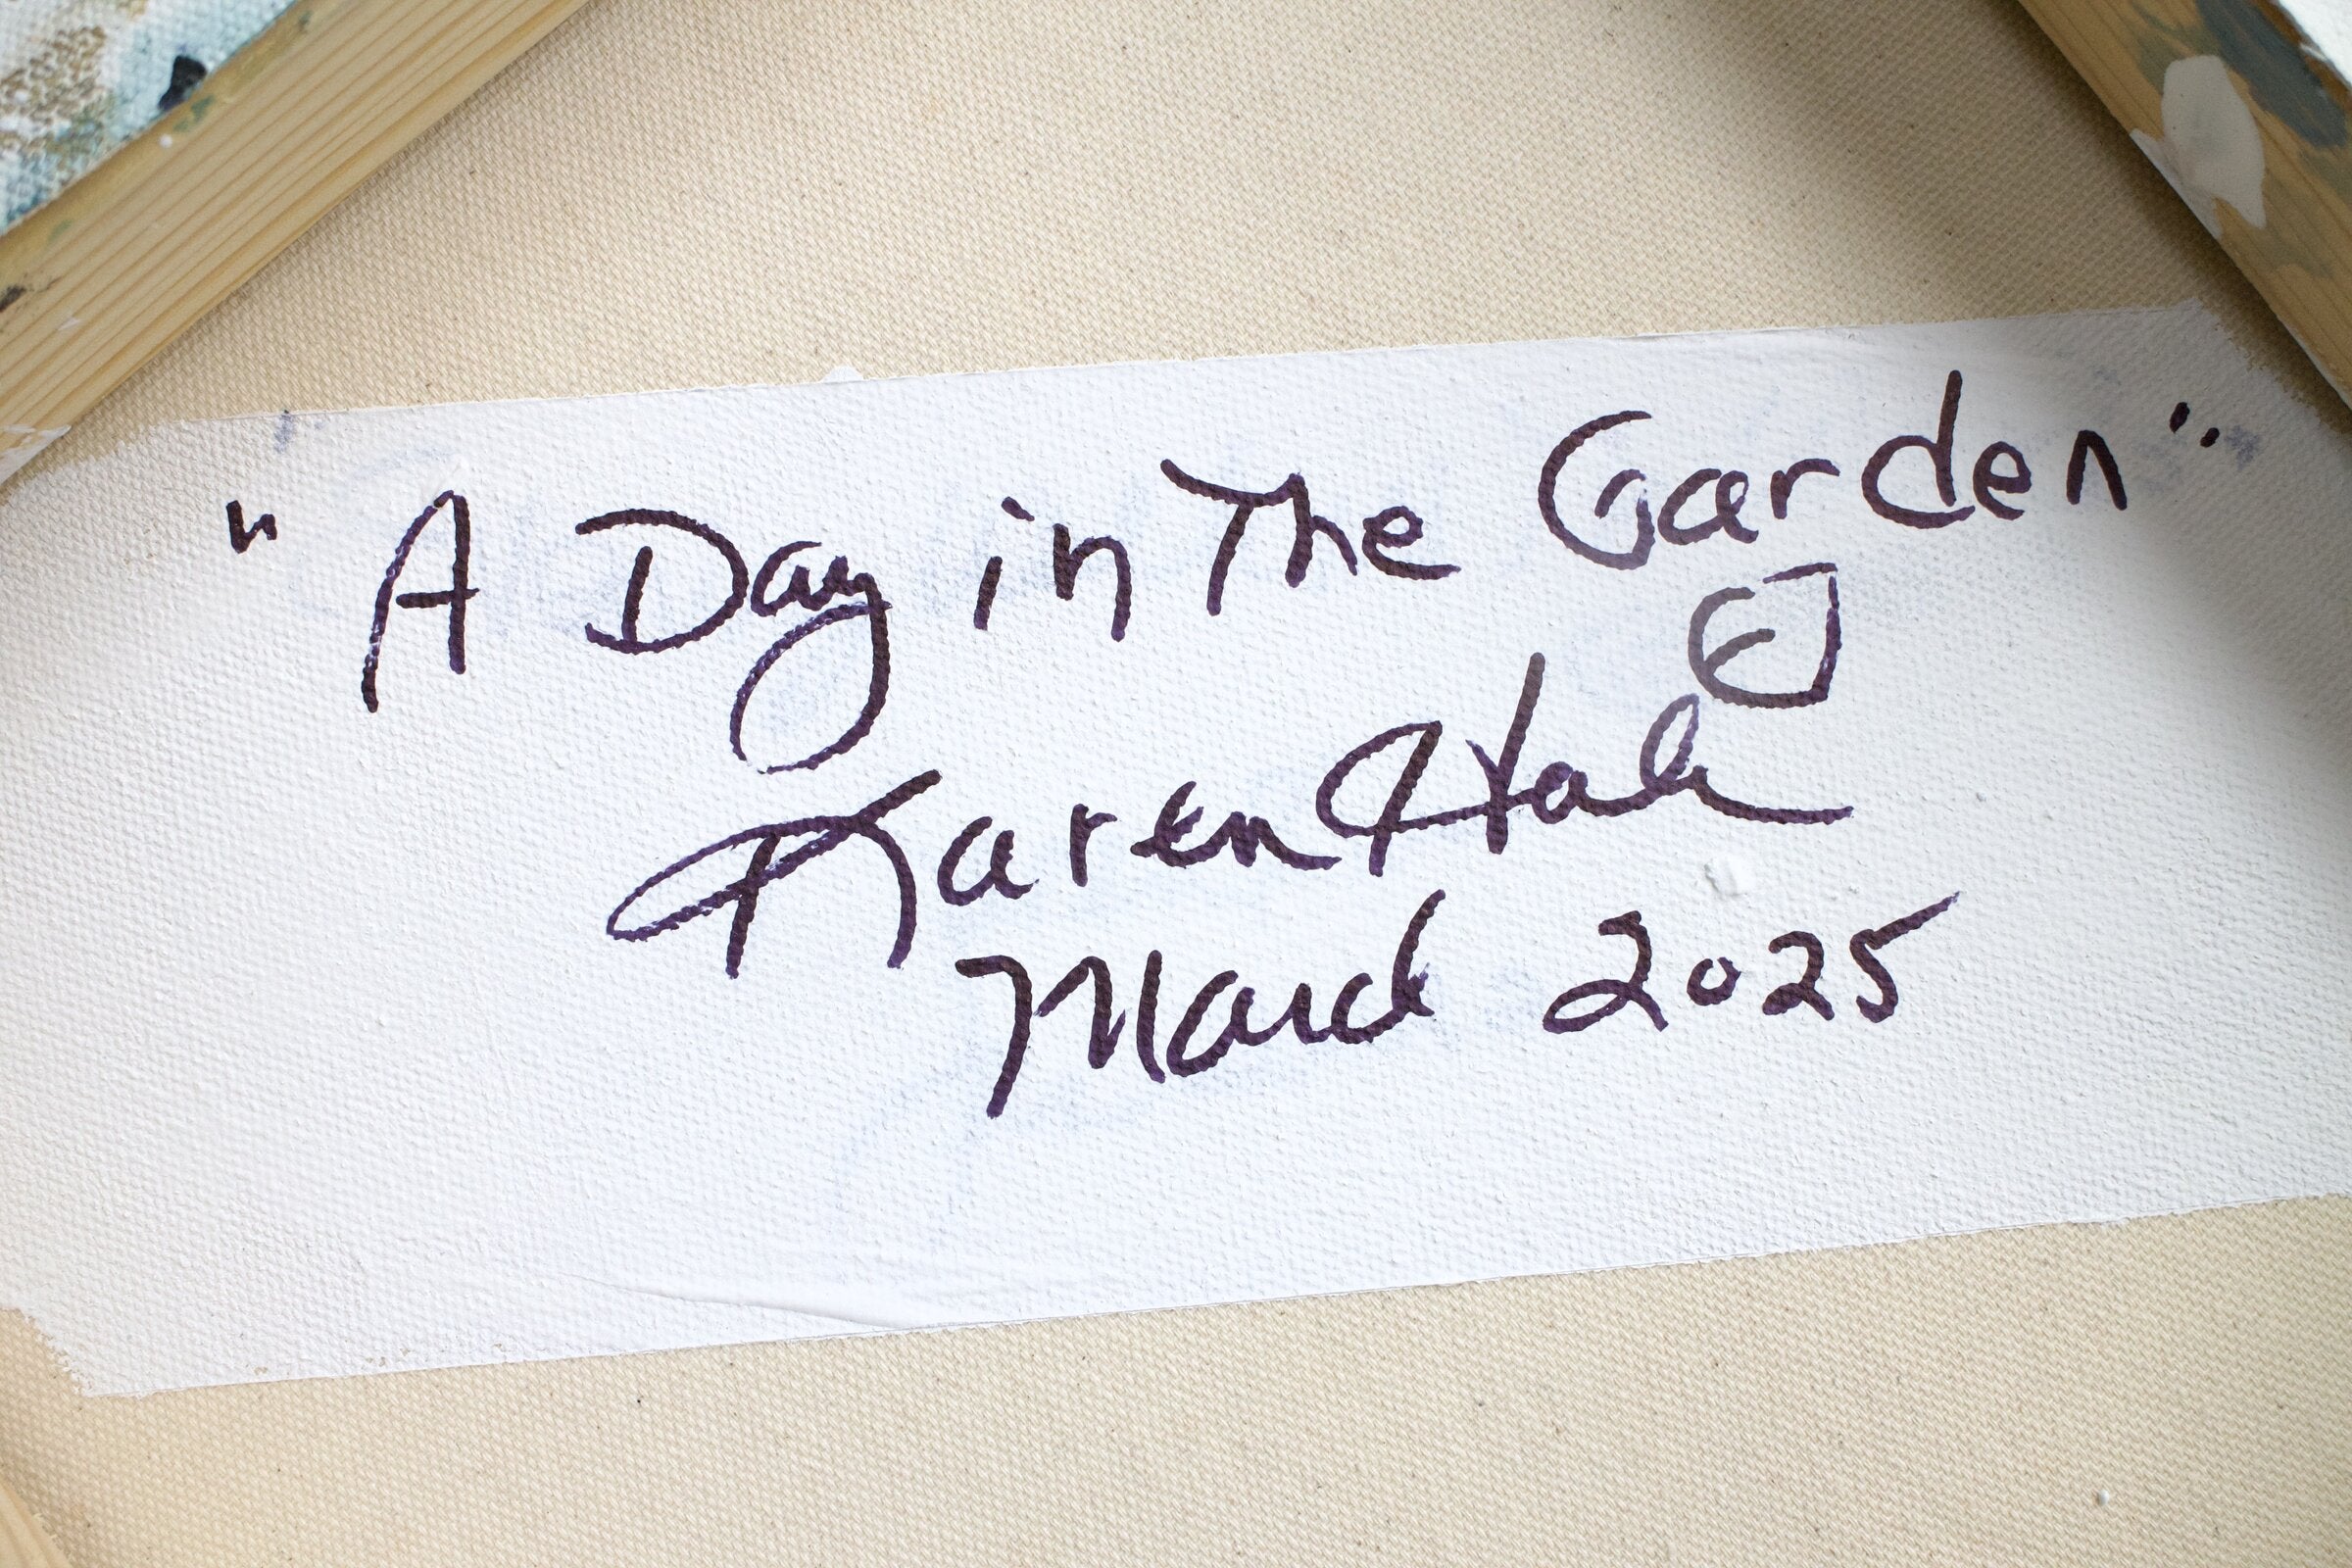 "A Day in The Garden"
Karen Hale
March 2025